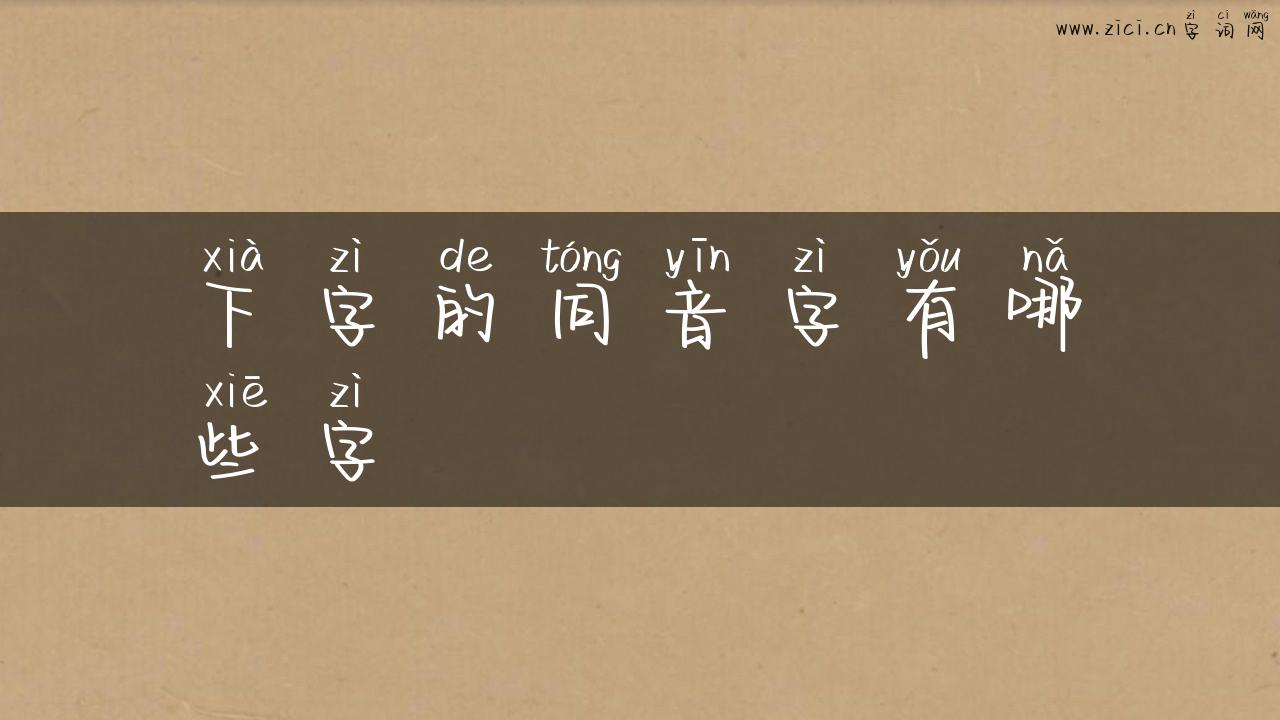 zì cí wǎng
www.zici.cn 字词网
xià zì de tóng yīn zì yǒu nǎ
下字的同音字有哪
xiē zì
些字